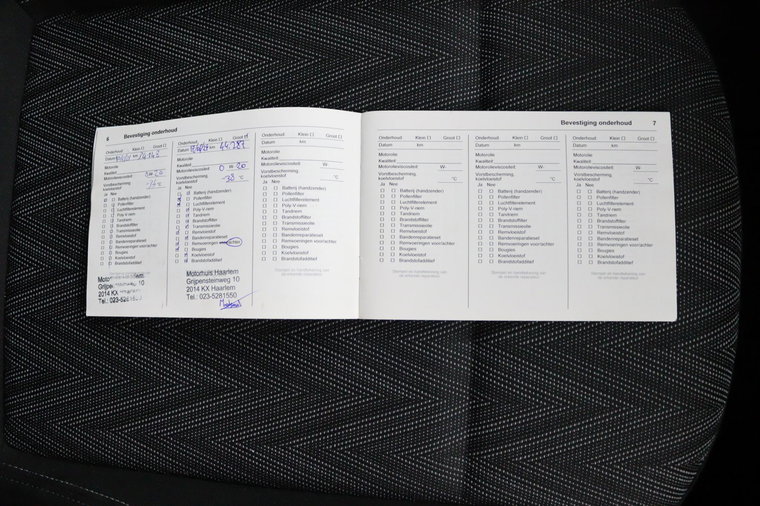 6 Bevestiging onderhoud
Onderhoud Klein ☐ Groot ☐
Datum km
Motorolie
Kwaliteit
Motorolieviscositeit 0W20
Vorstbescherming
koelvloeistof °C
Ja Nee
Batterij (handzender)
Pollenfilter
Luchtfilterelement
Poly-V-riem
Tandriem
Brandstoffilter
Transmissieolie
Remvloeistof
Bandenreparatieset
Remvoeringen voor/achter
Bougies
Koelvloeistof
Brandstofadditief
2014 KX Haarlem
Tel.: 023-5281550
Onderhoud Klein ☐ Groot
Datum km 44.787
Motorolie
Kwaliteit
Motorolieviscositeit 0 W- 20
Vorstbescherming
koelvloeistof -38 °C
Ja Nee
Batterij (handzender)
Pollenfilter
Luchtfilterelement
Poly-V-riem
Tandriem
Brandstoffilter
Transmissieolie
Remvloeistof
Bandenreparatieset
Remvoeringen voor/achter
Bougies
Koelvloeistof
Brandstofadditief
Motorhuis Haarlem
Gripensteinweg 10
2014 KX Haarlem
Tel.: 023-5281550
Onderhoud Klein ☐ Groot ☐
Datum km
Motorolie
Kwaliteit
Motorolieviscositeit W-
Vorstbescherming
koelvloeistof °C
Ja Nee
Batterij (handzender)
Pollenfilter
Luchtfilterelement
Poly-V-riem
Tandriem
Brandstoffilter
Transmissieolie
Remvloeistof
Bandenreparatieset
Remvoeringen voor/achter
Bougies
Koelvloeistof
Brandstofadditief
Stempel en handtekening van
de erkende reparateur
Bevestiging onderhoud 7
Onderhoud Klein ☐ Groot ☐
Datum km
Motorolie
Kwaliteit
Motorolieviscositeit W-
Vorstbescherming
koelvloeistof °C
Ja Nee
Batterij (handzender)
Pollenfilter
Luchtfilterelement
Poly-V-riem
Tandriem
Brandstoffilter
Transmissieolie
Remvloeistof
Bandenreparatieset
Remvoeringen voor/achter
Bougies
Koelvloeistof
Brandstofadditief
Stempel en handtekening van
de erkende reparateur
Onderhoud Klein ☐ Groot ☐
Datum km
Motorolie
Kwaliteit
Motorolieviscositeit W-
Vorstbescherming
koelvloeistof °C
Ja Nee
Batterij (handzender)
Pollenfilter
Luchtfilterelement
Poly-V-riem
Tandriem
Brandstoffilter
Transmissieolie
Remvloeistof
Bandenreparatieset
Remvoeringen voor/achter
Bougies
Koelvloeistof
Brandstofadditief
Stempel en handtekening van
de erkende reparateur
Onderhoud Klein ☐ Groot ☐
Datum km
Motorolie
Kwaliteit
Motorolieviscositeit W-
Vorstbescherming
koelvloeistof °C
Ja Nee
Batterij (handzender)
Pollenfilter
Luchtfilterelement
Poly-V-riem
Tandriem
Brandstoffilter
Transmissieolie
Remvloeistof
Bandenreparatieset
Remvoeringen voor/achter
Bougies
Koelvloeistof
Brandstofadditief
Stempel en handtekening van
de erkende reparateur